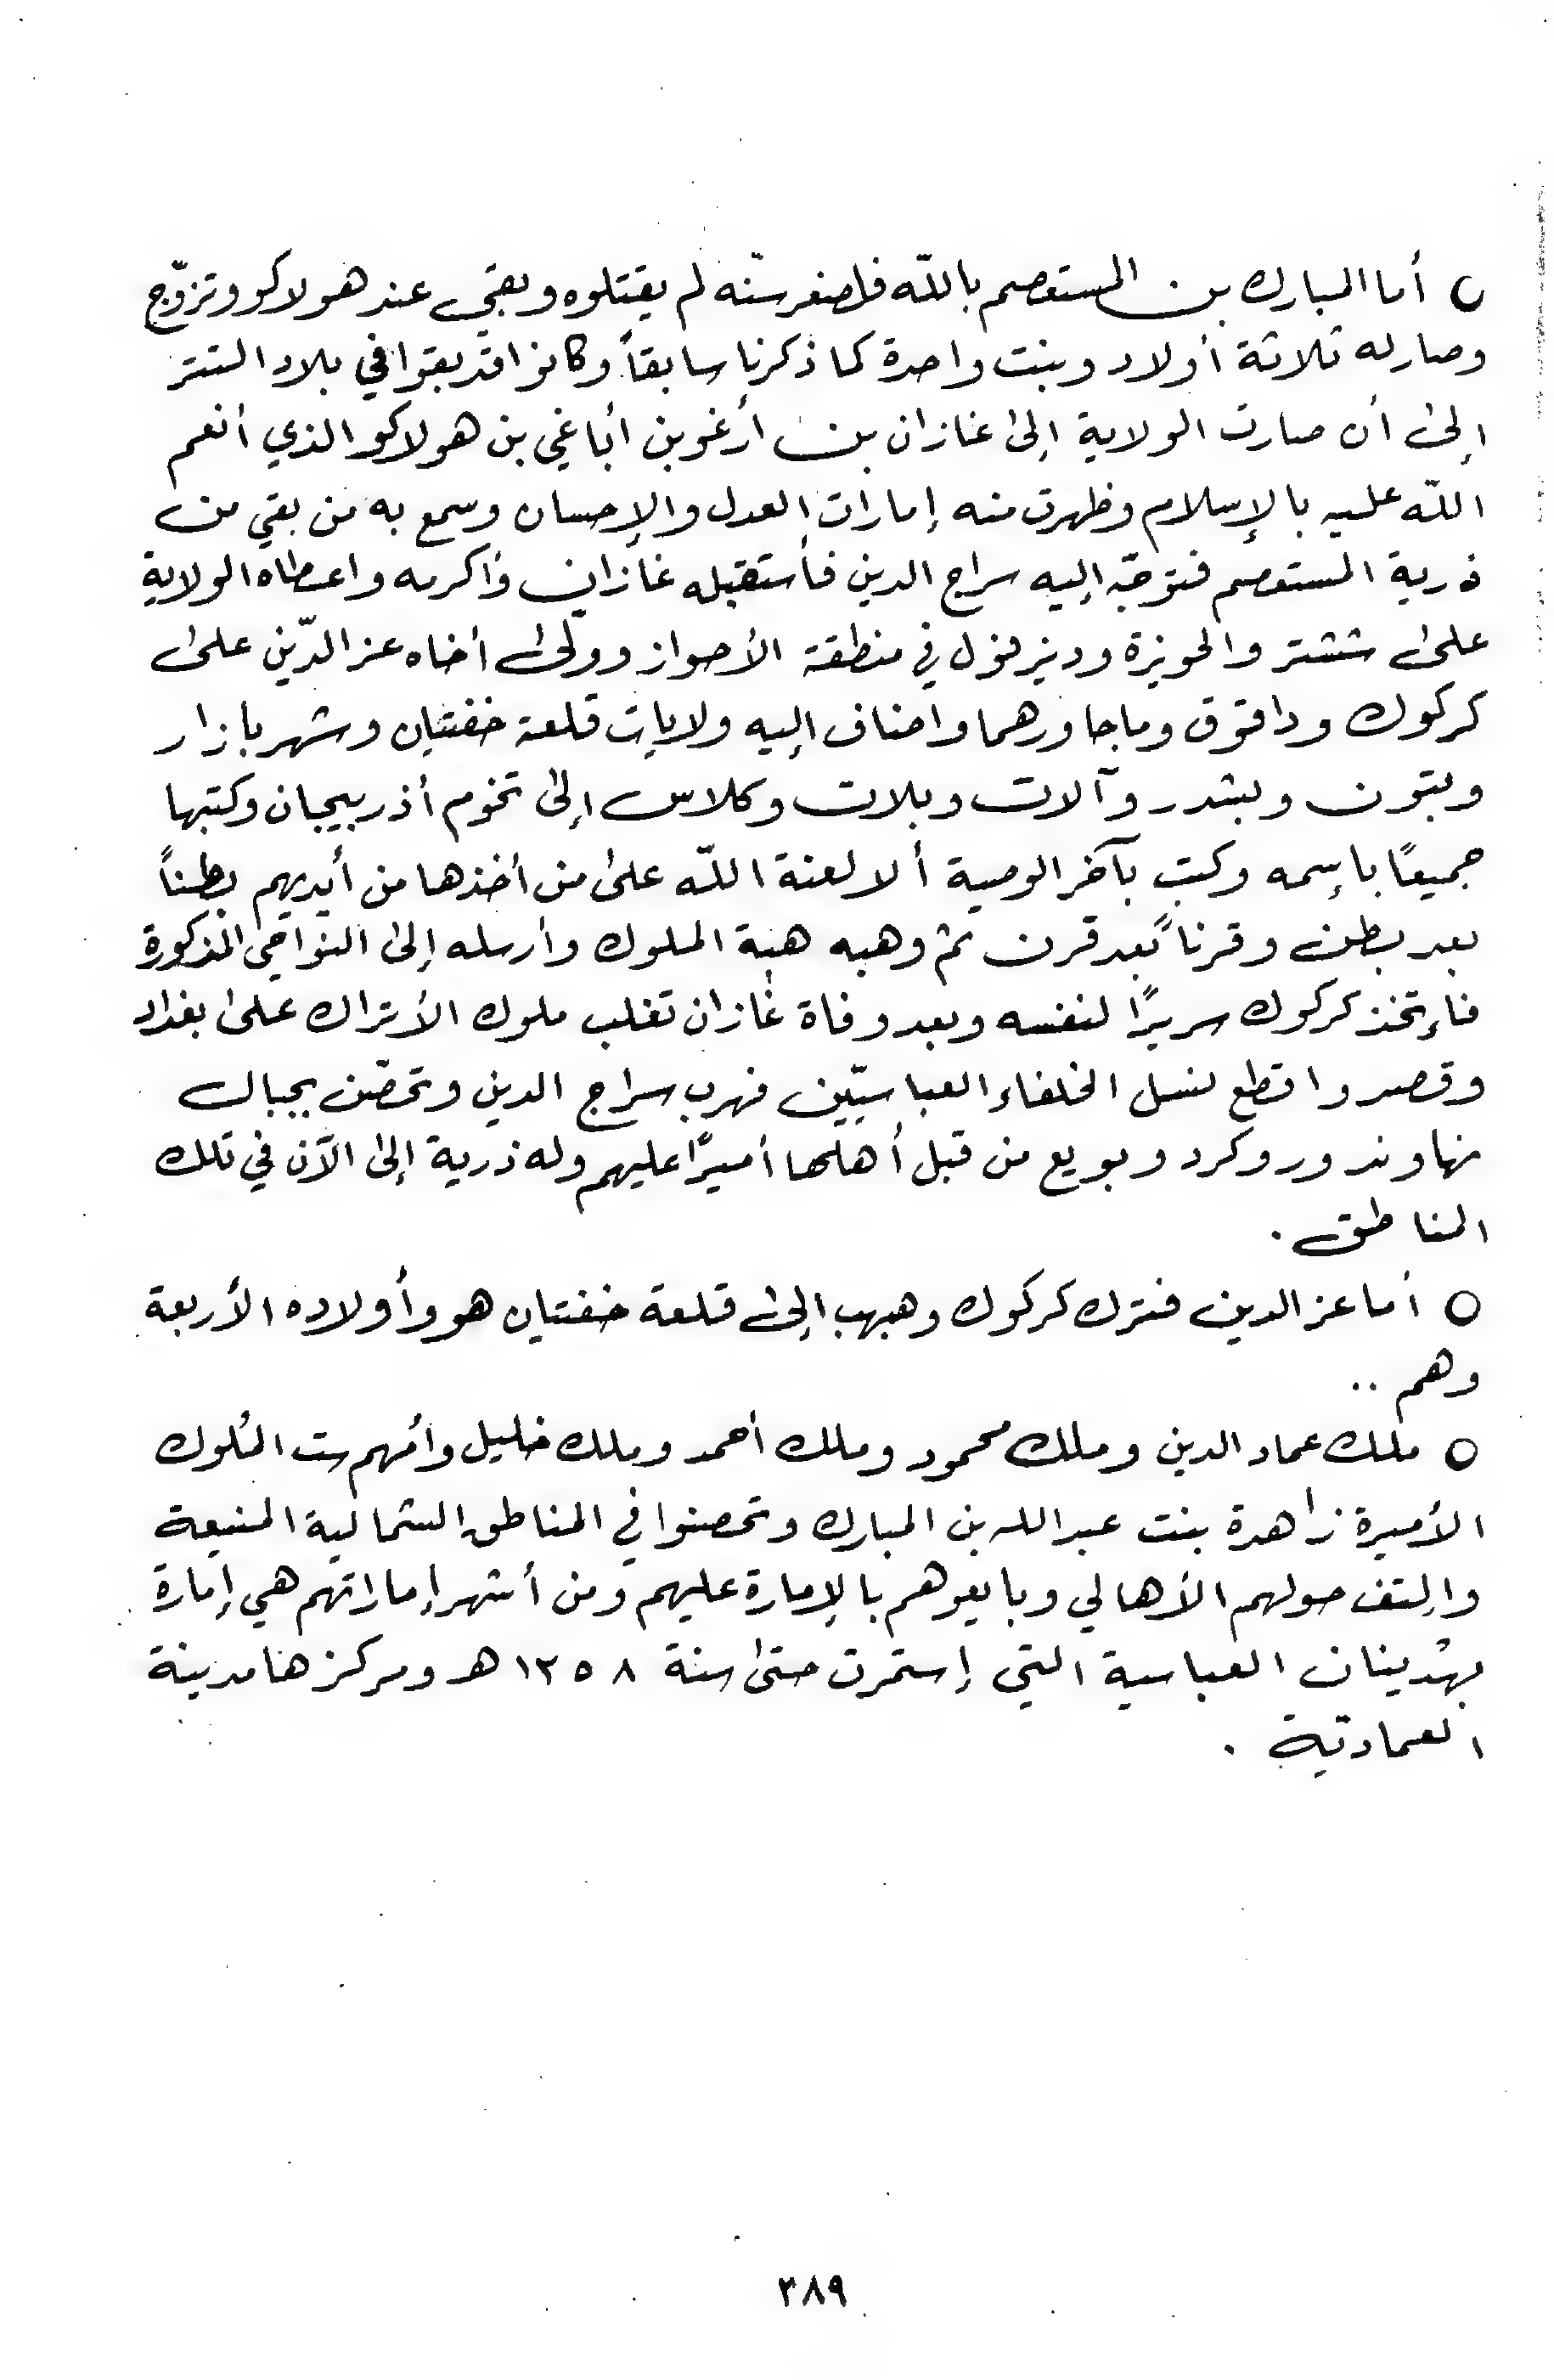 ○ أما المبارك بن المستعصم بالله فلصغر سنّه لم يقتلوه وبقي عند هولاكو وتزوّج
وصار له ثلاثة أولاد وبنت واحدة كما ذكرنا سابقاً وكانوا قد بقوا في بلاد التتر
إلىٰ أن صارت الولاية إلىٰ غازان بن أرغو بن أباغي بن هولاكو الذي أنعم
الله عليه بالإسلام وظهرت منه إمارات العدل والإحسان وسمع به من بقي من
ذرية المستعصم فتوجّه إليه سراج الدين فأستقبله غازان وأكرمه واعطاه الولاية
علىٰ ششتر والحويزة ودیزفول في منطقة الأحواز وولّىٰ أخاه عز الدّين علىٰ
كركوك وداقوق وما جاورهما واضاف إليه ولايات قلعة خفتيان وشهر بازار
وبتون وبشدر وآلات وبلات وكلاس إلىٰ تخوم أذربيجان وكتبها
جميعًا بإسمه وكتب بآخر الوصية ألا لعنة الله علىٰ من أخذها من أيديهم بطناً
بعد بطن وقرناً بعد قرن ثم وهبه هبة الملوك وأرسله إلىٰ النواحي المذكورة
فإتخذ كركوك سريرًا لنفسه وبعد وفاة غازان تغلب ملوك الأتراك علىٰ بغداد
وقصدوا قطع نسل الخلفاء العباسيّين فهرب سراج الدين وتحصّن بجبال
نهاوند وروكرد وبويع من قبل أهلها أميرًا عليهم وله ذرية إلىٰ الآن في تلك
المناطق .
○ أما عز الدين فترك كركوك وهبهب إلىٰ قلعة خفتيان هو وأولاده الأربعة
وهم ..
○ ملك عماد الدين وملك محمود وملك أحمد وملك خليل وأمهم ست الملوك
الأميرة زاهدة بنت عبد الله بن المبارك وتحصنوا في المناطق الشمالية المنيعة
والتف حولهم الأهالي وبايعوهم بالإمارة عليهم ومن أشهر إماراتهم هي إمارة
بهدينان العباسية التي إستمرت حتىٰ سنة ١٢٥٨ هـ ومركزها مدينة
العماديّة .
٣٨٩